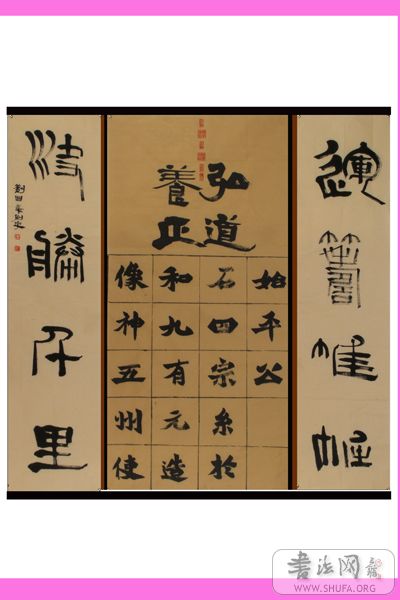 運籌帷幄
弘道
養正
始平公
石四宗糸於
和九有元造
像神五州使
決勝千里
書法网
WWW.SHUFA.ORG